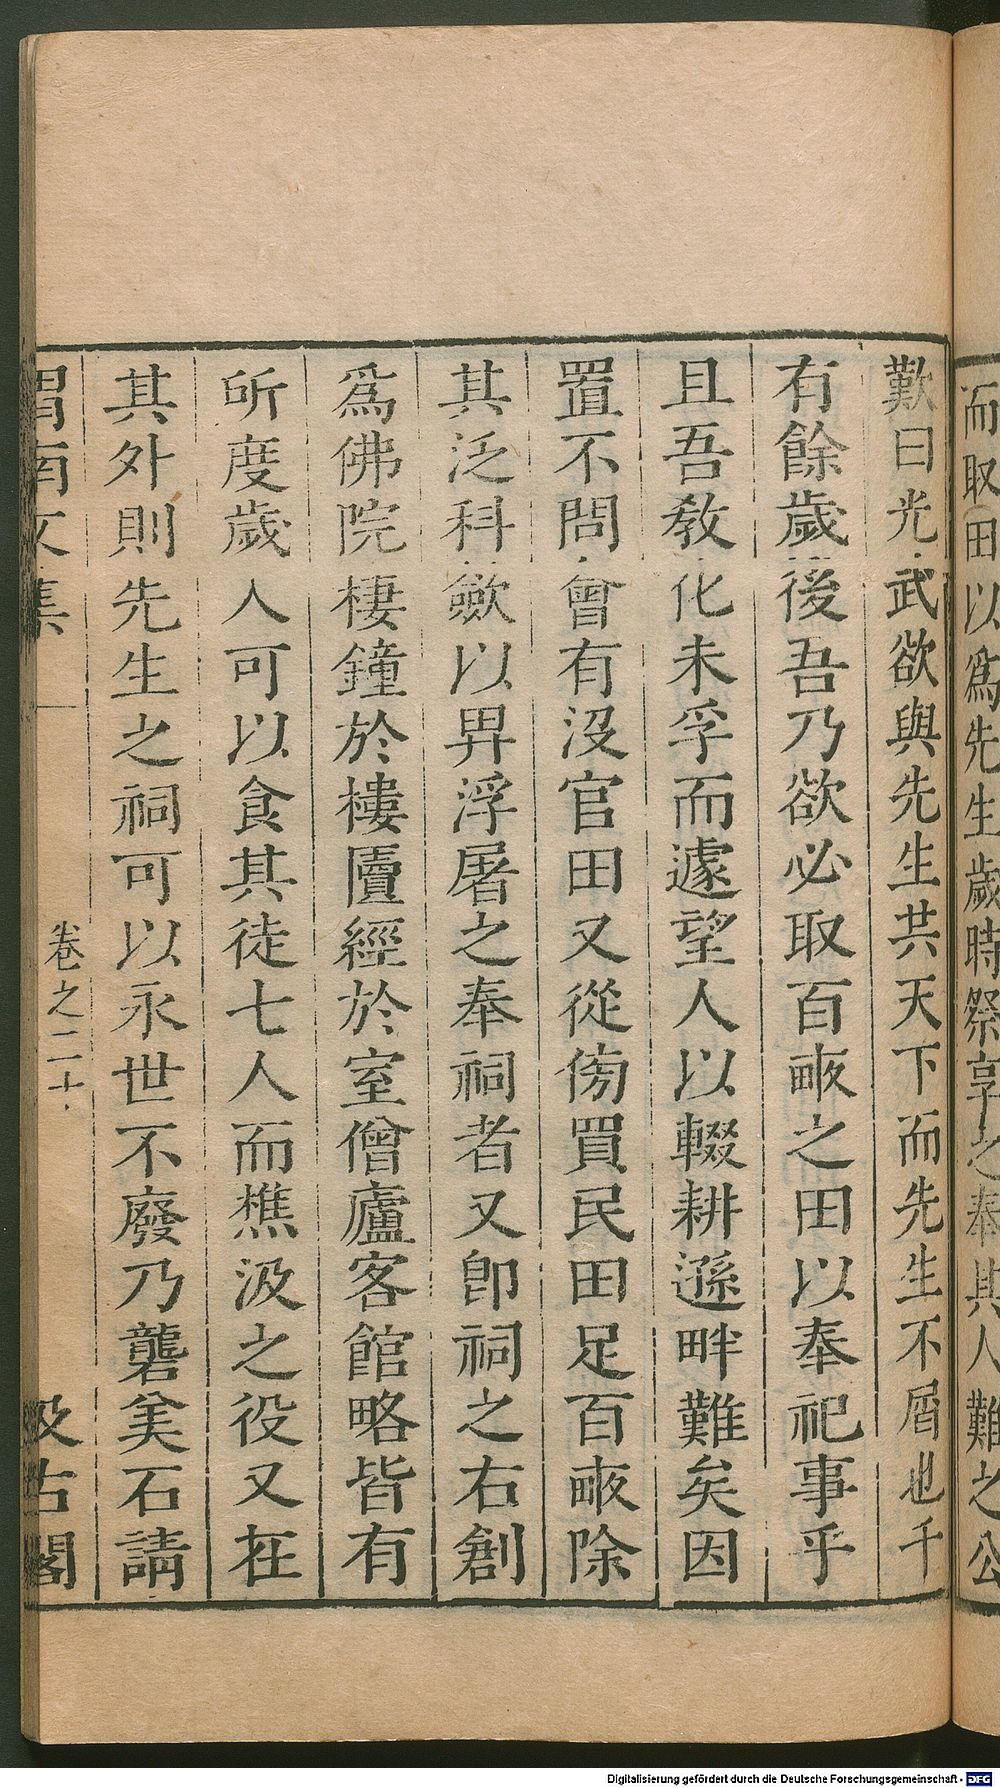 而取田以爲先生歲時祭享之奉其人難之公
歎曰光武欲與先生共天下而先生不屑也千
有餘歲後吾乃欲必取百畝之田以奉祀事乎
且吾敎化未孚而遽望人以輟耕遜畔難矣因
置不問會有沒官田又從傍買民田足百畝除
其泛科斂以畀浮屠之奉祠者又卽祠之右創
爲佛院棲鐘於樓匵經於室僧廬客館略皆有
所度歲入可以食其徒七人而樵汲之役又在
其外則先生之祠可以永世不廢乃礱美石請
渭南文集
卷之二十
汲古閣
Digitalisierung gefördert durch die Deutsche Forschungsgemeinschaft - DFG